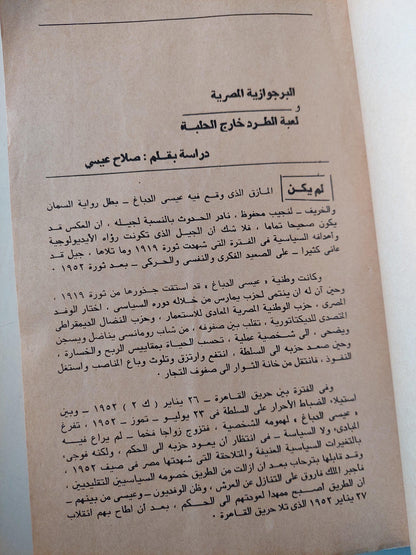 البرجوازية المصرية
و
لعبة الطرد خارج الحلبة
دراسة بقلم : صلاح عيسى
لم يكن المازق الذى وقع فيه عيسى الدباغ - بطل رواية السمان
والخريف - لنجيب محفوظ ، نادر الحدوث بالنسبة لجيله ، ان العكس قد
يكون صحيحا تماما ، فلا شك ان الجيل الذى تكونت رؤاه الأيديولوجية
وأهدافه السياسية فى الفترة التى شهدت ثورة ١٩١٩ وما تلاها ، جيل قد
عانى كثيرا - على الصعيد الفكرى والنفسى والحركى - بعد ثورة ١٩٥٢ .
وكانت وطنية « عيسى الدباغ » قد استقت جذورها من ثورة ١٩١٩ .
وحين آن له ان ينتمى لحزب يمارس من خلاله دوره السياسى ، اختار الوفد
المصرى ، حزب الوطنية المصرية المعادى للاستعمار ، وحزب النضال الديمقراطى
المتصدى للديكتاتورية ، تقلب بين صفوفه ، من شاب رومانسى يناضل ويسجن
ويضحى ، الى شخصية عملية ، تحسب الحياة بمقاييس الربح والخسارة ،
وحين صعد حزبه الى السلطة ، انتفع وارتزق وتلوث وباع المناصب واستغل
النفوذ ، فانتقل من خانة الثوار الى صفوف التجار .
وفى الفترة بين حريق القاهرة - ٢٦ يناير ( ك ٢ ) ١٩٥٢ - وبين
استيلاء الضباط الأحرار على السلطة فى ٢٣ يوليو - تموز - ١٩٥٢ ، تفرغ
« عيسى الدباغ » لهمومه الشخصية ، فتزوج زواجا فخما - لم يراع فيه
المبادىء ولا السياسة - فى انتظار أن يعود حزبه الى الحكم ، ولكنه فوجىء
بالتغيرات السياسية العنيفة والمتلاحقة التى شهدتها مصر فى صيف ١٩٥٢ ،
وقد قابلها بترحاب بعد ان ازالت من الطريق خصومه السياسيين التقليديين ،
فأجبر الملك فاروق على التنازل عن العرش ، وظن الوفديون - وعيسى من بينهم -
ان الطريق أصبح ممهدا لعودتهم الى الحكم ، بعد أن أطاح بهم انقلاب
٢٧ يناير ١٩٥٢ الذى تلا حريق القاهرة .